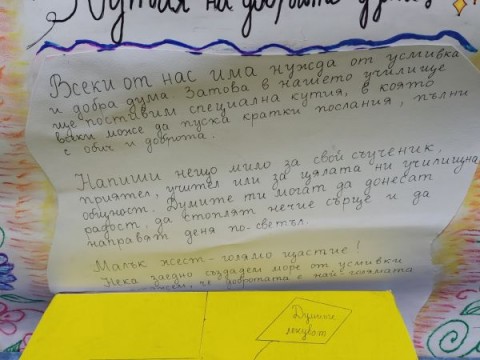 Кутия на добрите думи
Всеки от нас има нужда от усмивка
и добра дума. Затова в нашето училище
ще поставим специална кутия, в която
всеки може да пуска кратки послания, пълни
с обич и доброта.
Напиши нещо мило за свой съученик,
приятел, учител или за цялата ни училищна
общност. Думите ти могат да донесат
радост, да стоплят нечие сърце и да
направят деня по-светъл.
Малък жест - голямо щастие!
Нека заедно създадем море от усмивки
че добротата е най-голямата
Думите
лекуват